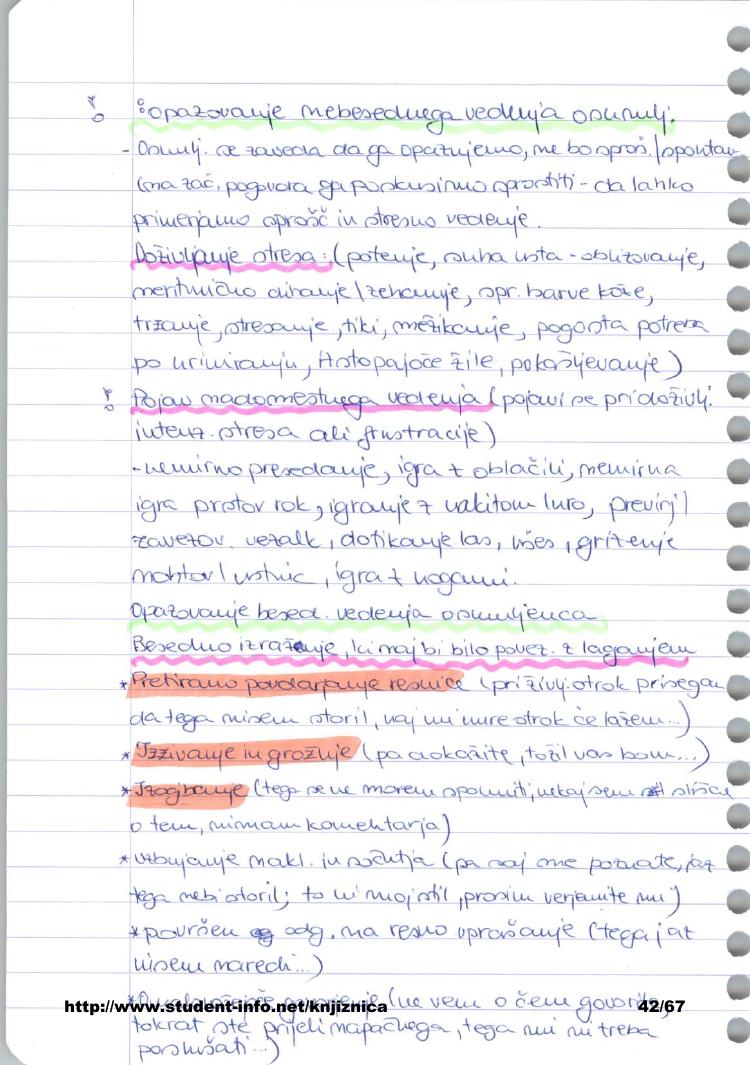 ! : opazovanje nebesednega vedenja osumlj.
- Osumlj. se zaveda da ga opazujemo, ne bo sproš./spontan
(na zač. pogovora ga poskusimo sprostiti - da lahko
primerjamo sprošč in stresno vedenje.
Doživljanje stresa: (potenje, suha usta - oblizovanje,
neritmično dihanje/zehanje, spr. barve kože,
trzanje, stresanje, tiki, mežikanje, pogosta potreba
po uriniranju, Hstopajoče žile, pokašljevanje)
! Pojav nadomestnega vedenja (pojavi se pri doživlj.
intenz. stresa ali frustracije)
- nemirno presedanje, igra z oblačili, nemirna
igra prstov rok, igranje z nakitom/uro,
zavezov. vezalk, dotikanje las, ušes, grizenje
nohtov/ustnic, igra z nogami.
Opazovanje besed. vedenja osumljenca
Besedno izražanje, ki naj bi bilo povez. z laganjem
* Pretirano poudarjanje resnice (pri življ. otrok prisegam
da tega nisem storil, naj mi umre otrok če lažem...)
* Izzivanje in grožnje (pa dokažite, tožil vas bom...)
* Izogibanje (tega se ne morem spomniti, nekaj sem slišal
o tem, nimam komentarja)
* vzbujanje nakl. in sočutja (pa saj me poznate, jaz
tega nebi storil; to ni moj stil, prosim verjamite mi)
* površen odg. na resno vprašanje (tega jaz
nisem naredil...)
(ne vem o čem govorite,
tokrat ste prijeli napačnega, tega mi ni treba
poslušati...)
http://www.student-info.net/knjiznica
42/67